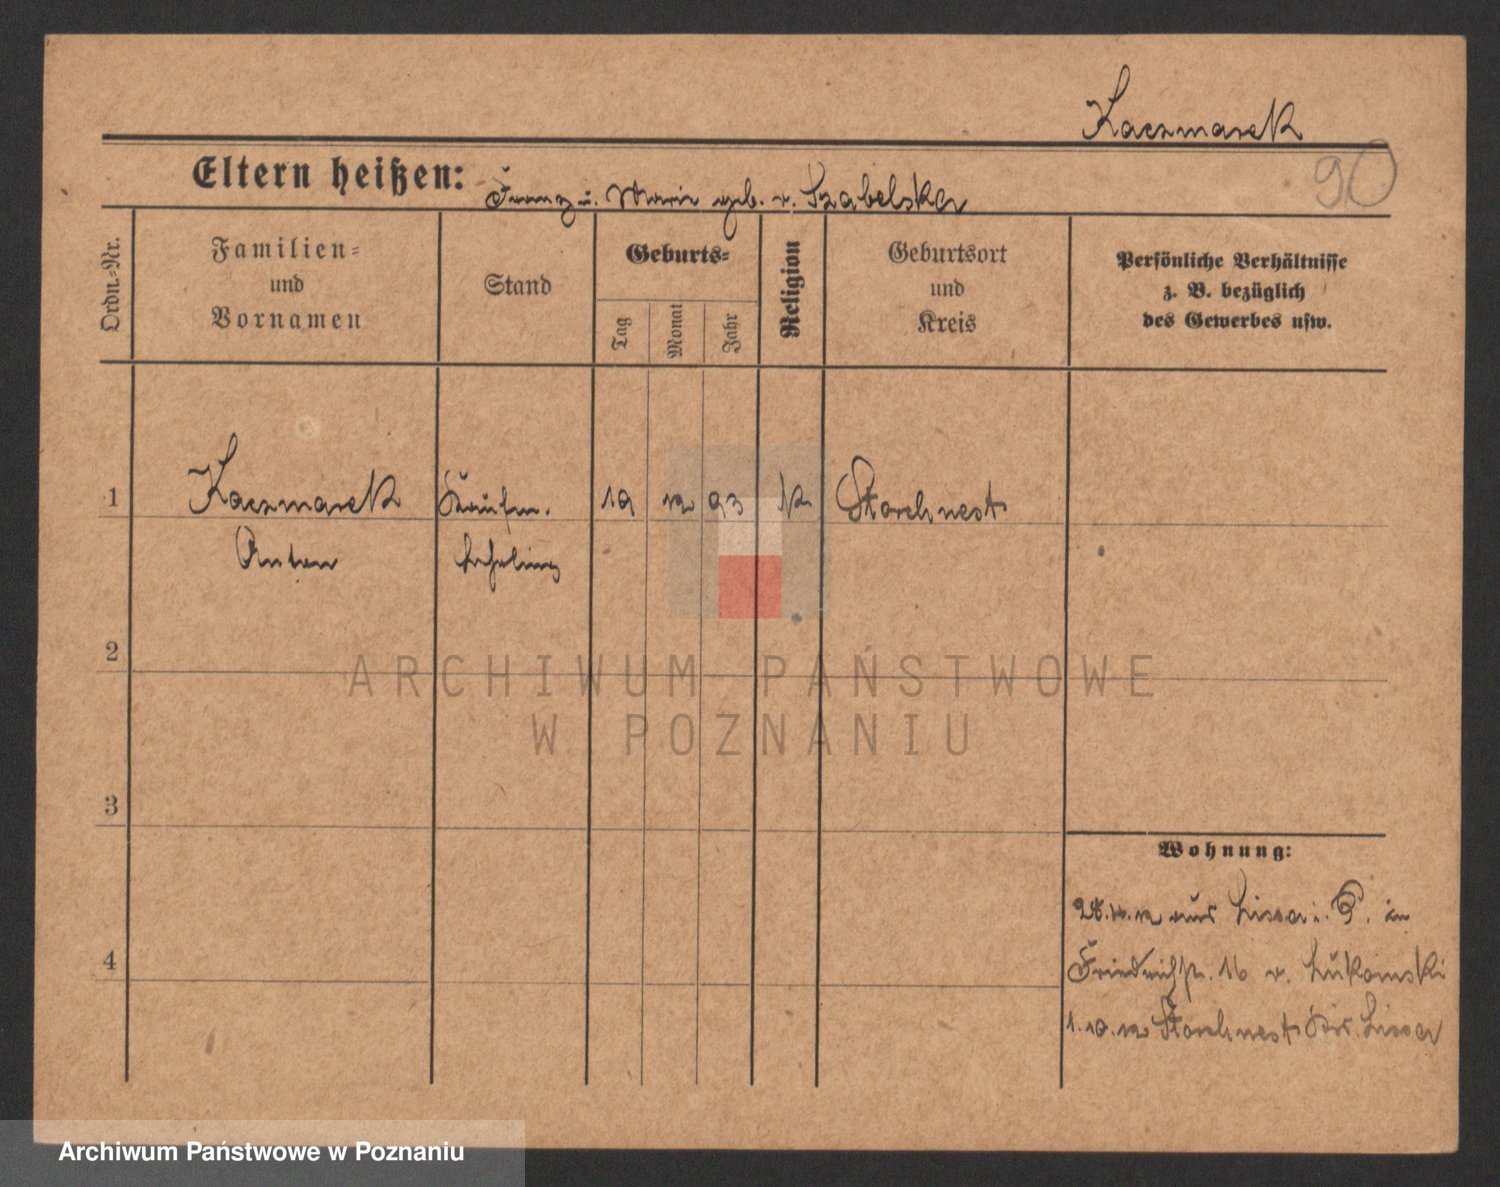 Kaczmarek
90
Eltern heißen: Franz u. Marie geb. v. Szabelska
Ordn.-Nr.
Familien-
und
Vornamen
Stand
Geburts-
Tag
Monat
Jahr
Religion
Geburtsort
und
Kreis
Persönliche Verhältnisse
z. B. bezüglich
des Gewerbes usw.
1 Kaczmarek Kaufm. 19 12 93 K Storchnest
Anton Lehrling
2
ARCHIWUM PAŃSTWOWE
W POZNANIU
3
Wohnung:
aus Lissa i. P. in
4
Friedrichstr. 16 v. Lukomski
1.10.12 Storchnest Krs. Lissa
Archiwum Państwowe w Poznaniu